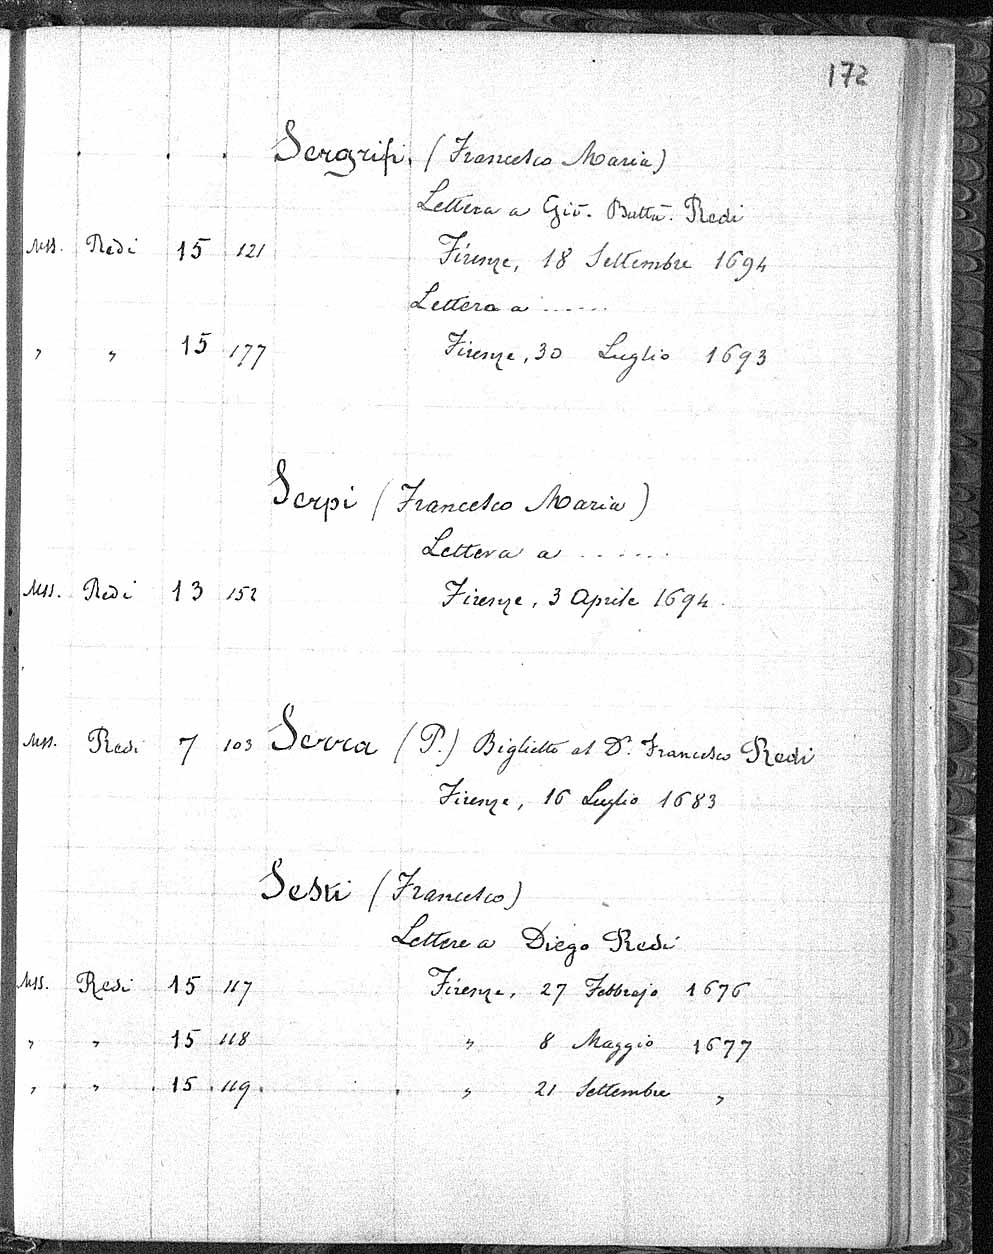 172
Sergrifi, (Francesco Maria)
Lettera a Gio. Batta. Redi
Mss. Redi 15 121 Firenze, 18 Settembre 1694
Lettera a ......
" " 15 177 Firenze, 30 Luglio 1693
Serpi (Francesco Maria)
Lettera a ......
Mss. Redi 13 152 Firenze, 3 Aprile 1694
Mss. Redi 7 103 Serra (P.) Biglietto al Dr. Francesco Redi
Firenze, 16 Luglio 1683
Sesti (Francesco)
Lettere a Diego Redi
Mss. Redi 15 117 Firenze, 27 Febbrajo 1676
" " 15 118 " 8 Maggio 1677
" " 15 119 " 21 Settembre "